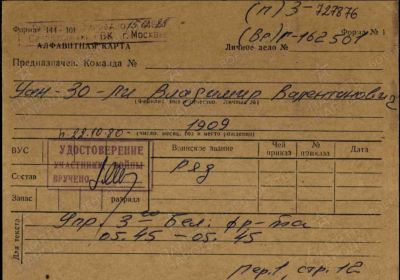 (П) З-727876
Формат 144-101
15.02.85
ВК г. Москвы
Форма № 1
(Вр) Р-162501
АЛФАВИТНАЯ КАРТА
Личное дело №
Предназначен. Команда №
Чан-Зо-Ли Владимир Валентинович
(Фамилия, имя и отчество. Личный №)
1909
п. 22.10.80-
(число, месяц, год и место рождения)
ВУС
УДОСТОВЕРЕНИЕ
УЧАСТНИКА ВОЙНЫ
ВРУЧЕНО
Воинское звание
Чей приказ
№ приказа
Дата
Состав
ряд
Запас
разряд
Для текста
Упр. 3го Бел. фр-та
05.45-05.45
пер.1, стр.12